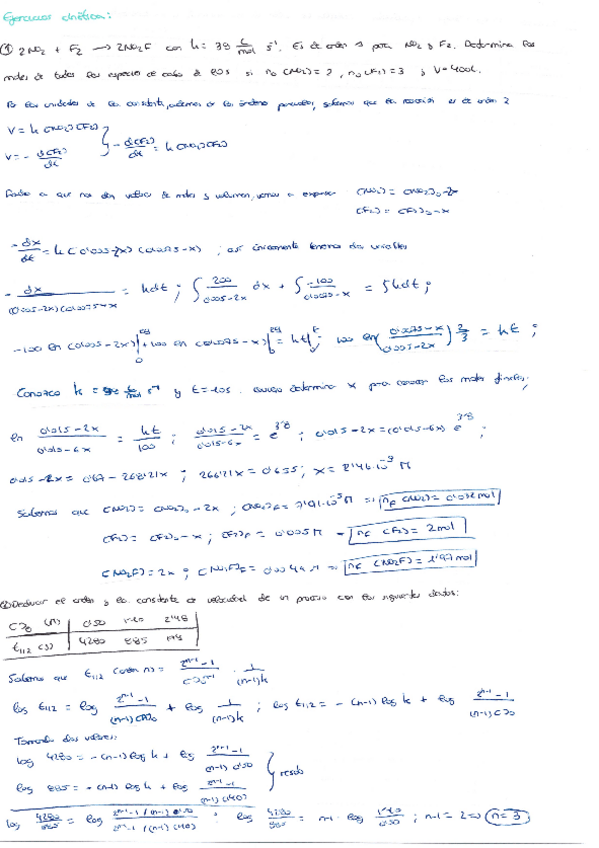 Ejercicios cinética:
① 2NO₂ + F₂ → 2NO₂F con k = 38 L/mol s⁻¹. Es de orden 1 para NO₂ y F₂. Determina los
moles de todas las especies al cabo de 10s si n₀(NO₂)=2, n₀(F₂)=3 y V=400L.
Por las unidades de la constante, podemos ver los órdenes parciales, sabemos que la reacción es de orden 2
V = k(NO₂)(F₂)
V = - d(F₂)/dt } - d(F₂)/dt = k(NO₂)(F₂)
Debido a que nos dan valores de moles y volumen, vamos a expresar (NO₂) = (NO₂)₀-2x
(F₂) = (F₂)₀-x
- dx/dt = k(0'005-2x)(0'0075-x); así únicamente tenemos dos variables
- dx/(0'005-2x)(0'0075-x) = kdt; ∫ 200/0'005-2x dx + ∫ -100/0'0075-x = ∫kdt;
-100 ln(0'005-2x) + 100 ln(0'0075-x) = kt; 100 ln(0'0075-x/0'005-2x) 2/3 = kt;
Conozco k = L/mol s⁻¹ y t=10s. determina x para conocer los moles finales;
ln 0'015-2x/0'015-6x = kt/100; 0'015-2x/0'015-6x = e^3'8; 0'015-2x=(0'015-6x) e^3'8;
0'015-2x = 0'67-268'21x; 266'21x = 0'655; x = 2'46·10⁻³ M
Sabemos que (NO₂)=(NO₂)₀-2x; (NO₂)F = 7'91·10⁻⁵ M ⇒ nF(NO₂) = 0'032mol
(F₂)=(F₂)₀-x; (F₂)F = 0'005M ⇒ nF(F₂) = 2mol
(NO₂F)=2x; (NO₂F)F = 0'0049 M ⇒ nF(NO₂F) = 1'97mol
② Deducir el orden y la constante de velocidad de un proceso con los siguientes datos:
C₀ (M) 0'50 1'10 2'48
t1/2 (s) 4280 885 174
Sabemos que t1/2 (orden n) = 2ⁿ⁻¹-1/C₀ⁿ⁻¹ · 1/(n-1)k
log t1/2 = log 2ⁿ⁻¹-1/(n-1)C₀ + log 1/(n-1)k; log t1/2 = -(n-1)log k + log 2ⁿ⁻¹-1/(n-1)C₀
Tomando dos valores:
log 4280 = -(n-1)log k + log 2ⁿ⁻¹-1/(n-1)0'50
log 885 = -(n-1)log k + log 2ⁿ⁻¹-1/(n-1)1'10 } resto
log 4280/885 = log 2ⁿ⁻¹-1/(n-1)0'50 / 2ⁿ⁻¹-1/(n-1)1'10; log 4280/885 = n-1 · log 1'10/0'50; n-1=2 ⇒ n=3